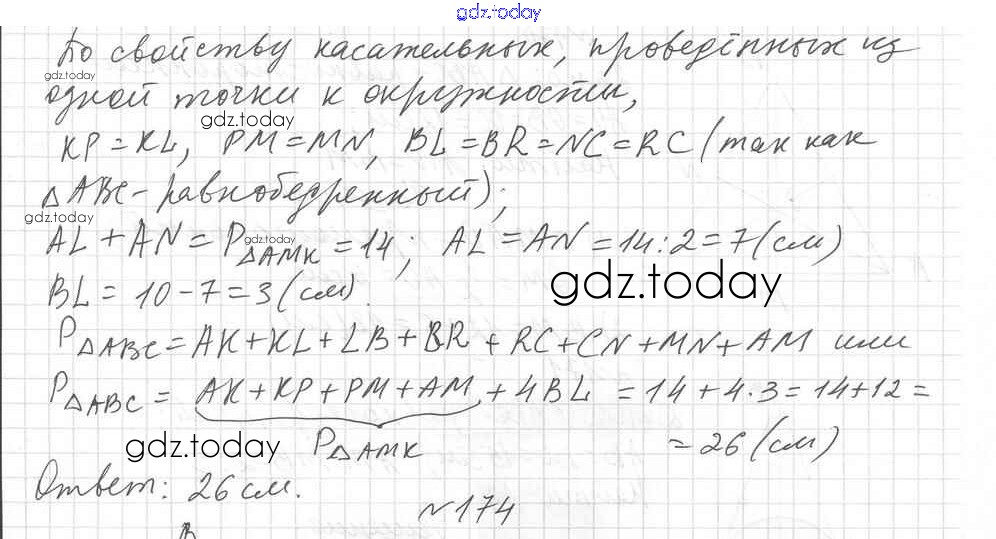 gdz.today
По свойству касательных, проведённых из
gdz.today
одной точки к окружности,
gdz.today
KP = KL, PM = MN, BL = BR = NC = RC (так как
△ABC - равнобедренный);
gdz.today
AL + AN = P△AMK = 14; AL = AN = 14 : 2 = 7 (см)
gdz.today
BL = 10 - 7 = 3 (см).
gdz.today
P△ABC = AK + KL + LB + BR + RC + CN + MN + AM или
P△ABC = AK + KP + PM + AM + 4BL = 14 + 4·3 = 14 + 12 =
P△AMK
= 26 (см)
gdz.today
Ответ: 26 см.
№174
B